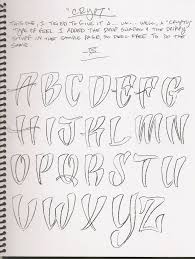 "CRYPT"
THIS ONE, I TRIED TO GIVE IT A... UH... WELL, A "CRYPTY"
TYPE OF FEEL. I ADDED THE DROP SHADOW & THE DRIPPY
STUFF IN THE SAMPLE PAGE, SO FEEL FREE TO DO THE
SAME
A B C D E F G
H I J K L M N
O P Q R S T U
V W X Y Z